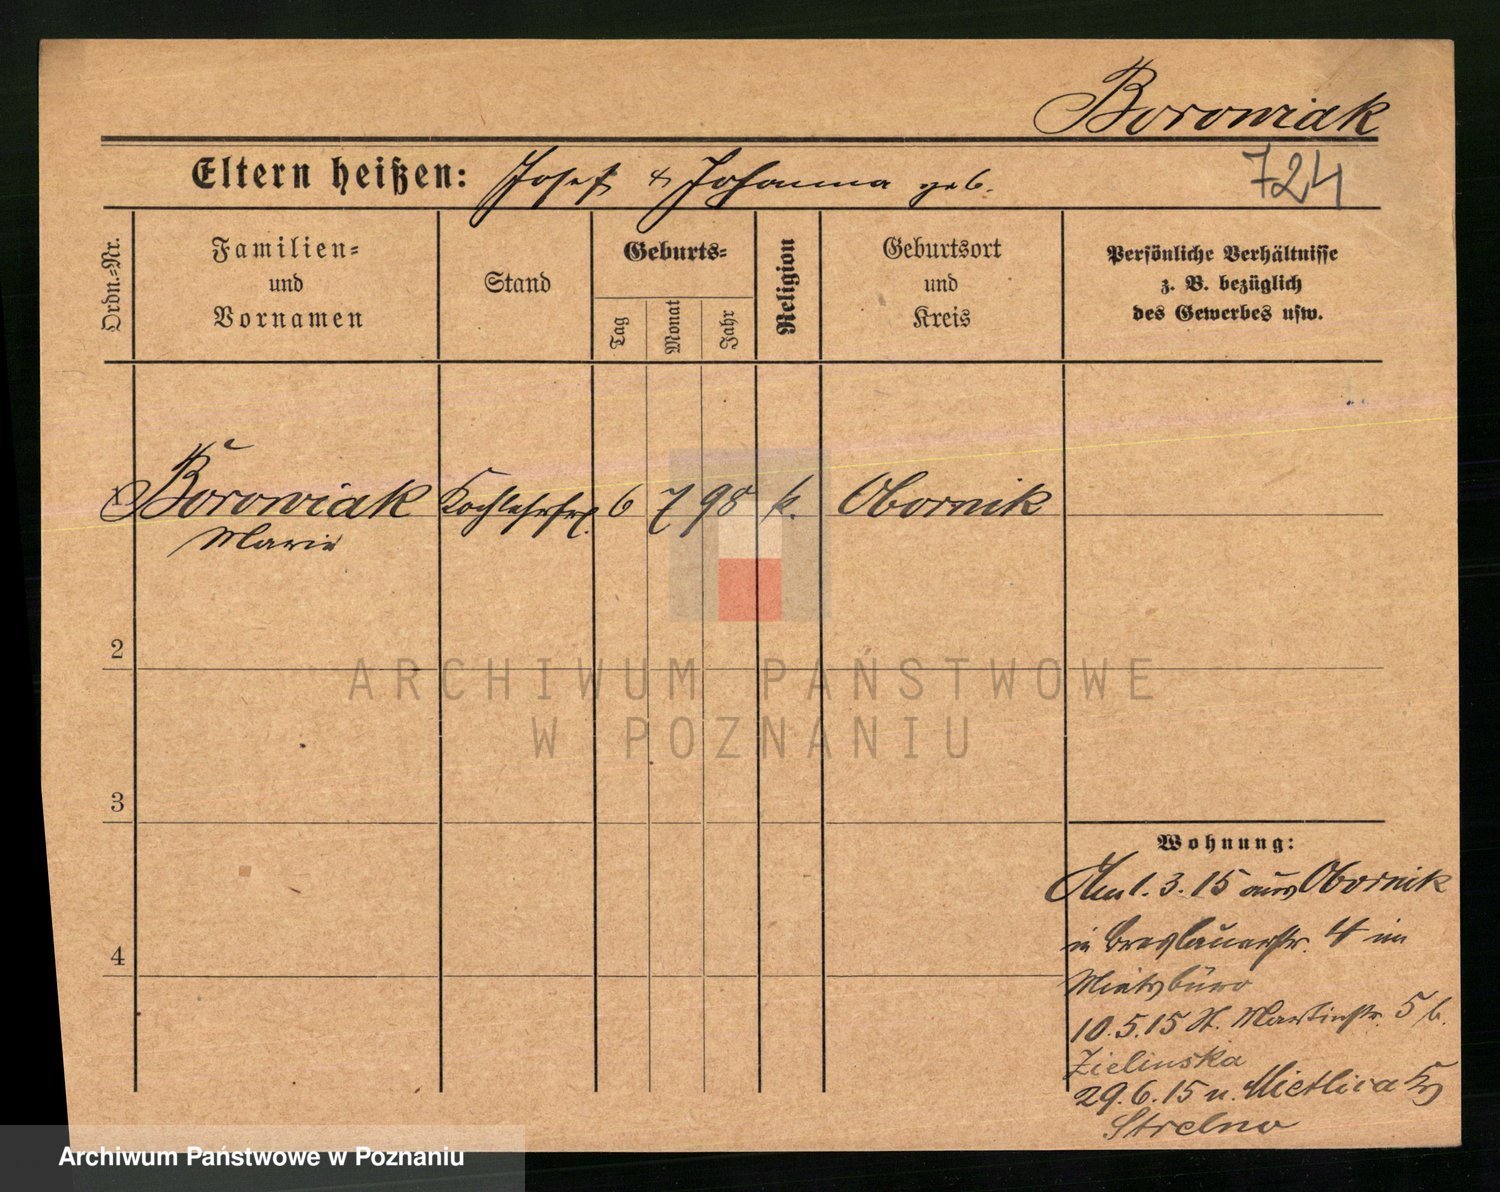 Borowiak
Eltern heißen: Josef & Johanna geb.
724
Ordn.=Nr.
Familien=
und
Vornamen
Stand
Geburts=
Tag
Monat
Jahr
Religion
Geburtsort
und
Kreis
Persönliche Verhältnisse
z. B. bezüglich
des Gewerbes usw.
1 Borowiak Kochlehrfrl. 6 7 98 k. Obornik
Marie
2
ARCHIWUM PAŃSTWOWE
W POZNANIU
3
Wohnung:
Am 1. 3. 15 aus Obornik
in Breslauerstr. 4 im
Mietsbüro
4
10.5.15 St. Martinstr. 5 b.
Zielinska
29.6.15 n. Mietlica Kr
Strelno
Archiwum Państwowe w Poznaniu